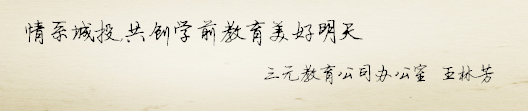 情系城投,共创学前教育美好明天
三元教育公司办公室 王林芳